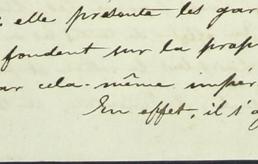 elle présente les gar
fondent sur la prop
ar cela-même impér
En effet, il s'a